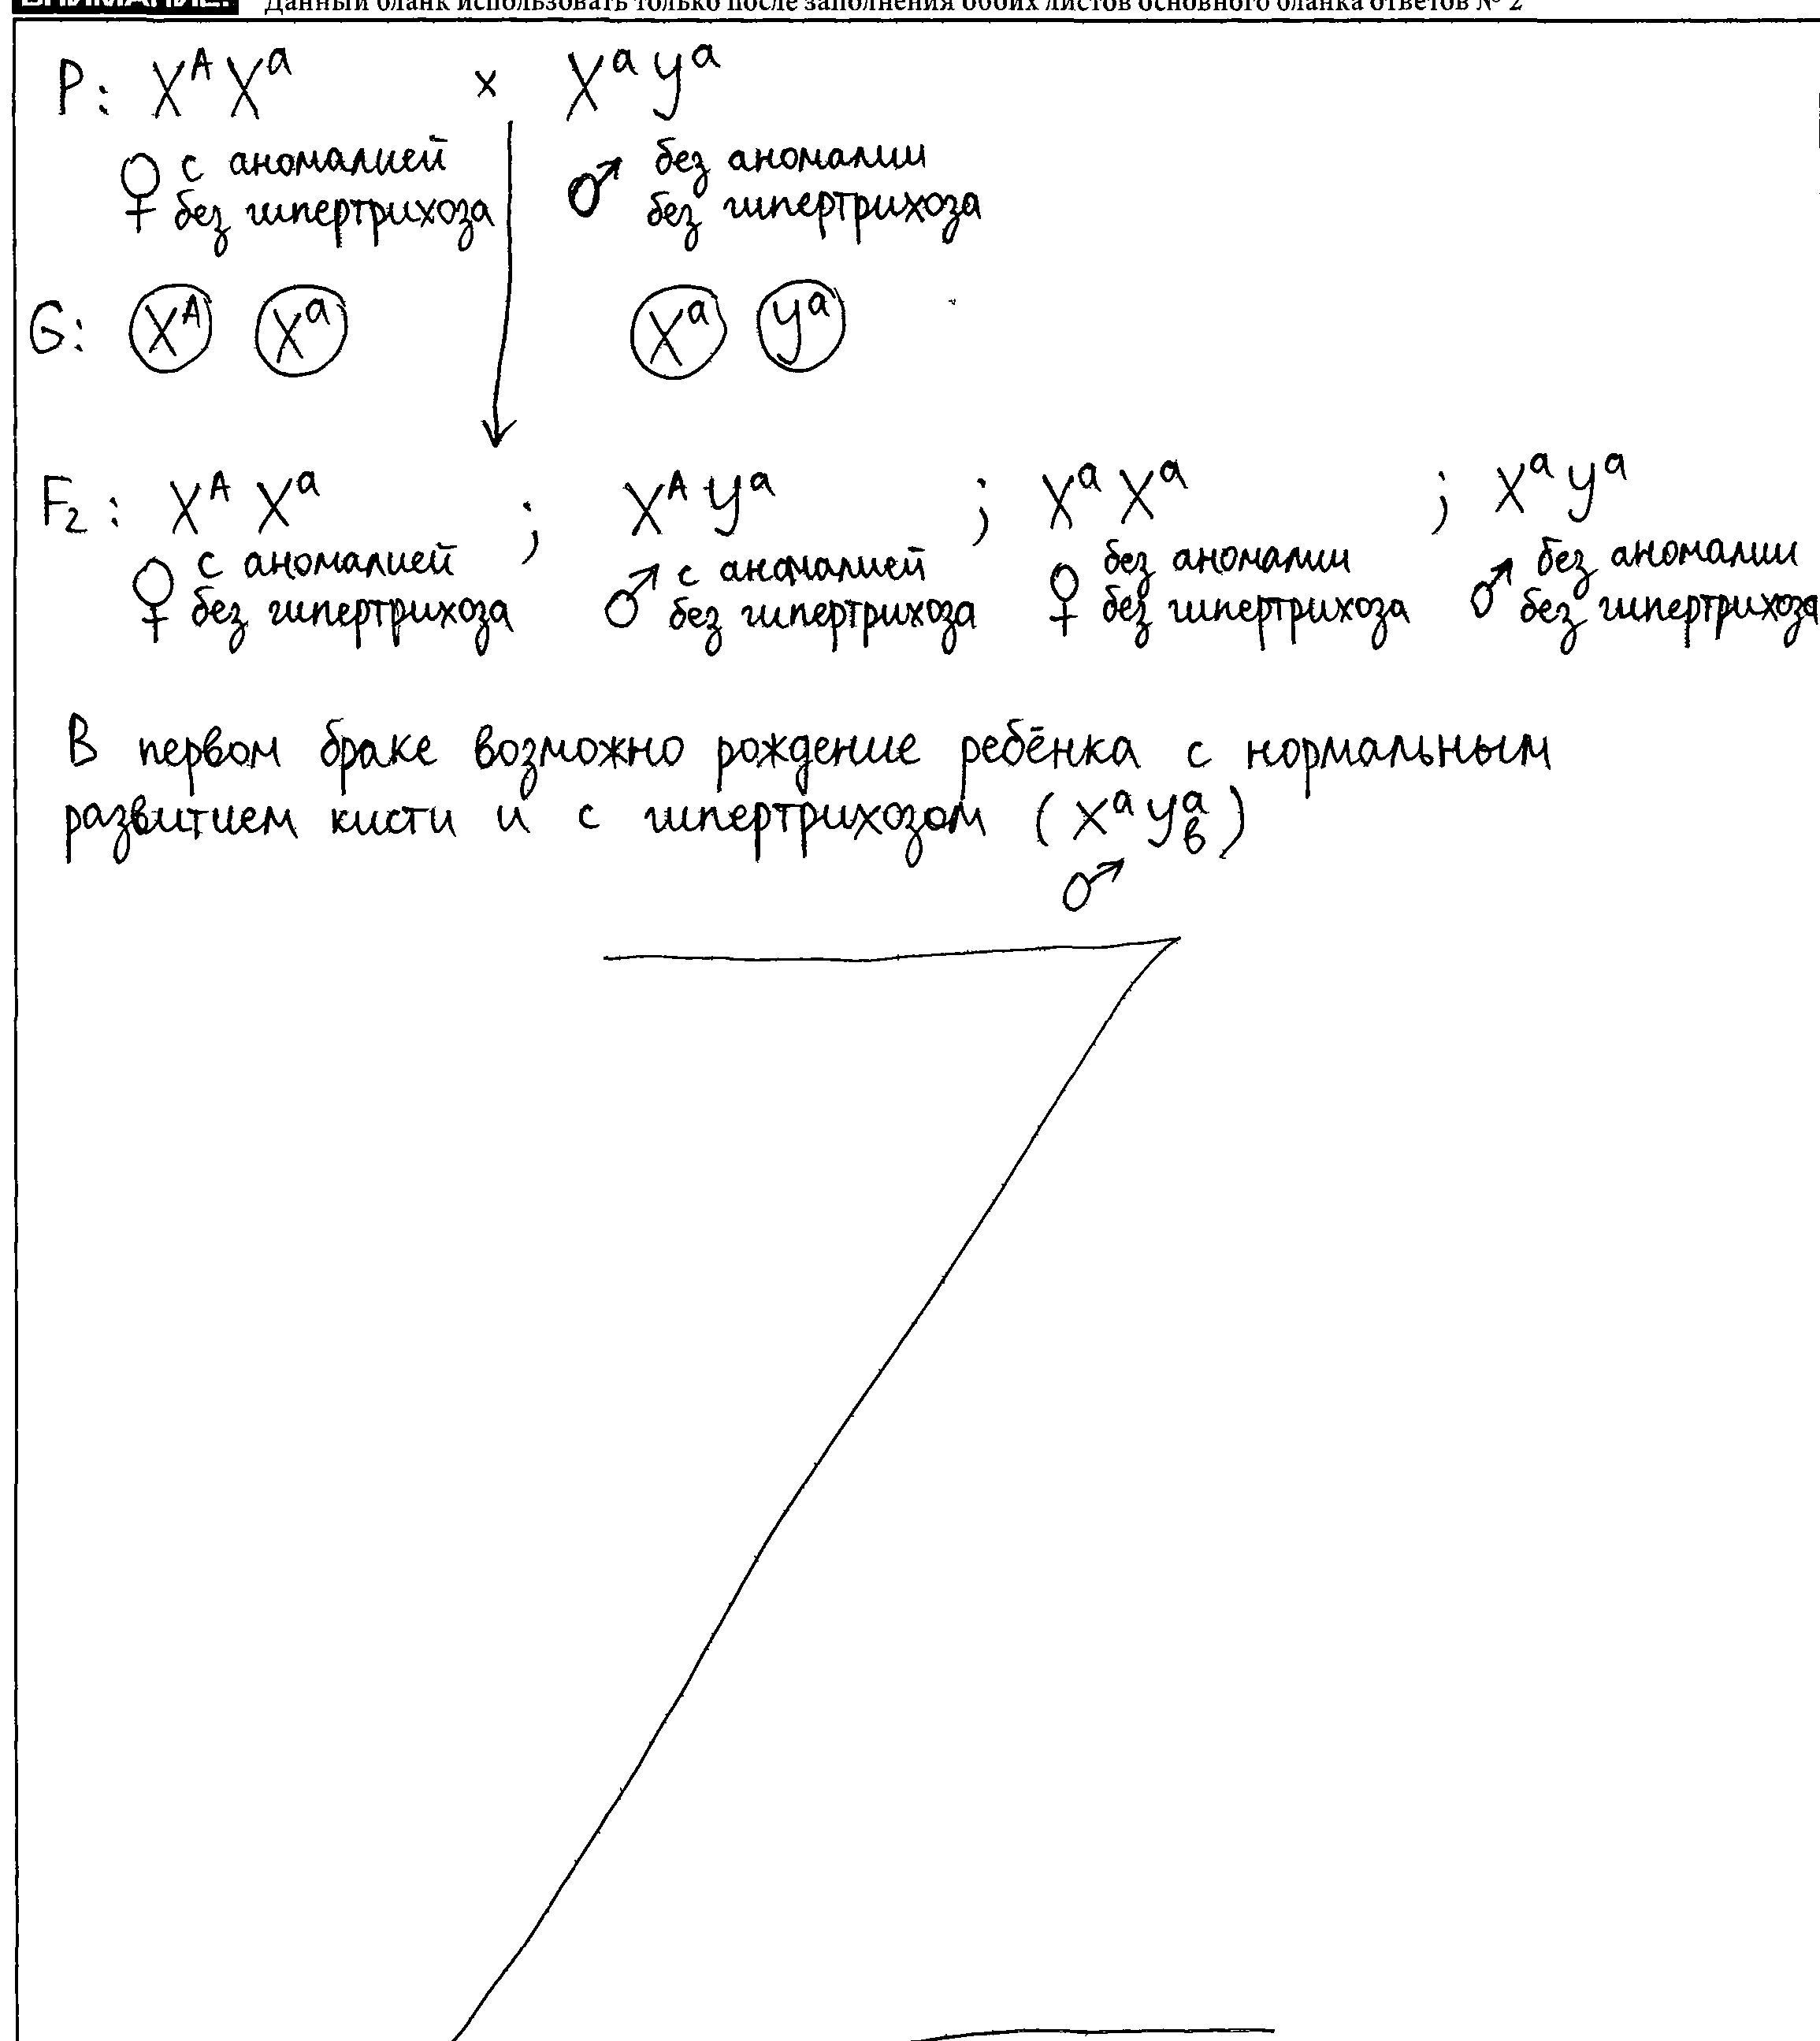 ВНИМАНИЕ! Данный бланк использовать только после заполнения обоих листов основного бланка ответов № 2
P: Xᴬ Xᵃ × Xᵃ Yᵃ
♀ с аномалией ♂ без аномалии
без гипертрихоза без гипертрихоза
G: Xᴬ Xᵃ Xᵃ Yᵃ
F₂: Xᴬ Xᵃ ; Xᴬ Yᵃ ; Xᵃ Xᵃ ; Xᵃ Yᵃ
♀ с аномалией ♂ с аномалией ♀ без аномалии ♂ без аномалии
без гипертрихоза без гипертрихоза без гипертрихоза без гипертрихоза
В первом браке возможно рождение ребёнка с нормальным
развитием кисти и с гипертрихозом (Xᵃ Yᵃв)
♂